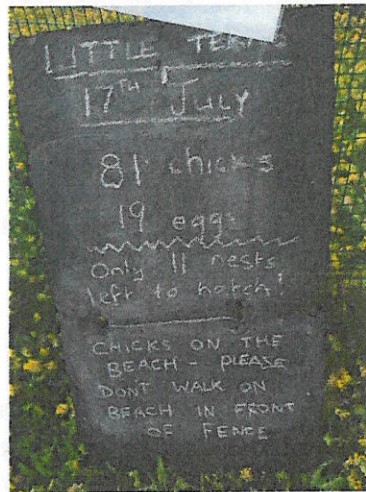 LITTLE TERNS
17TH JULY
81 chicks
19 eggs
Only 11 nests
left to hatch!
CHICKS ON THE
BEACH - PLEASE
DONT WALK ON
BEACH IN FRONT
OF FENCE